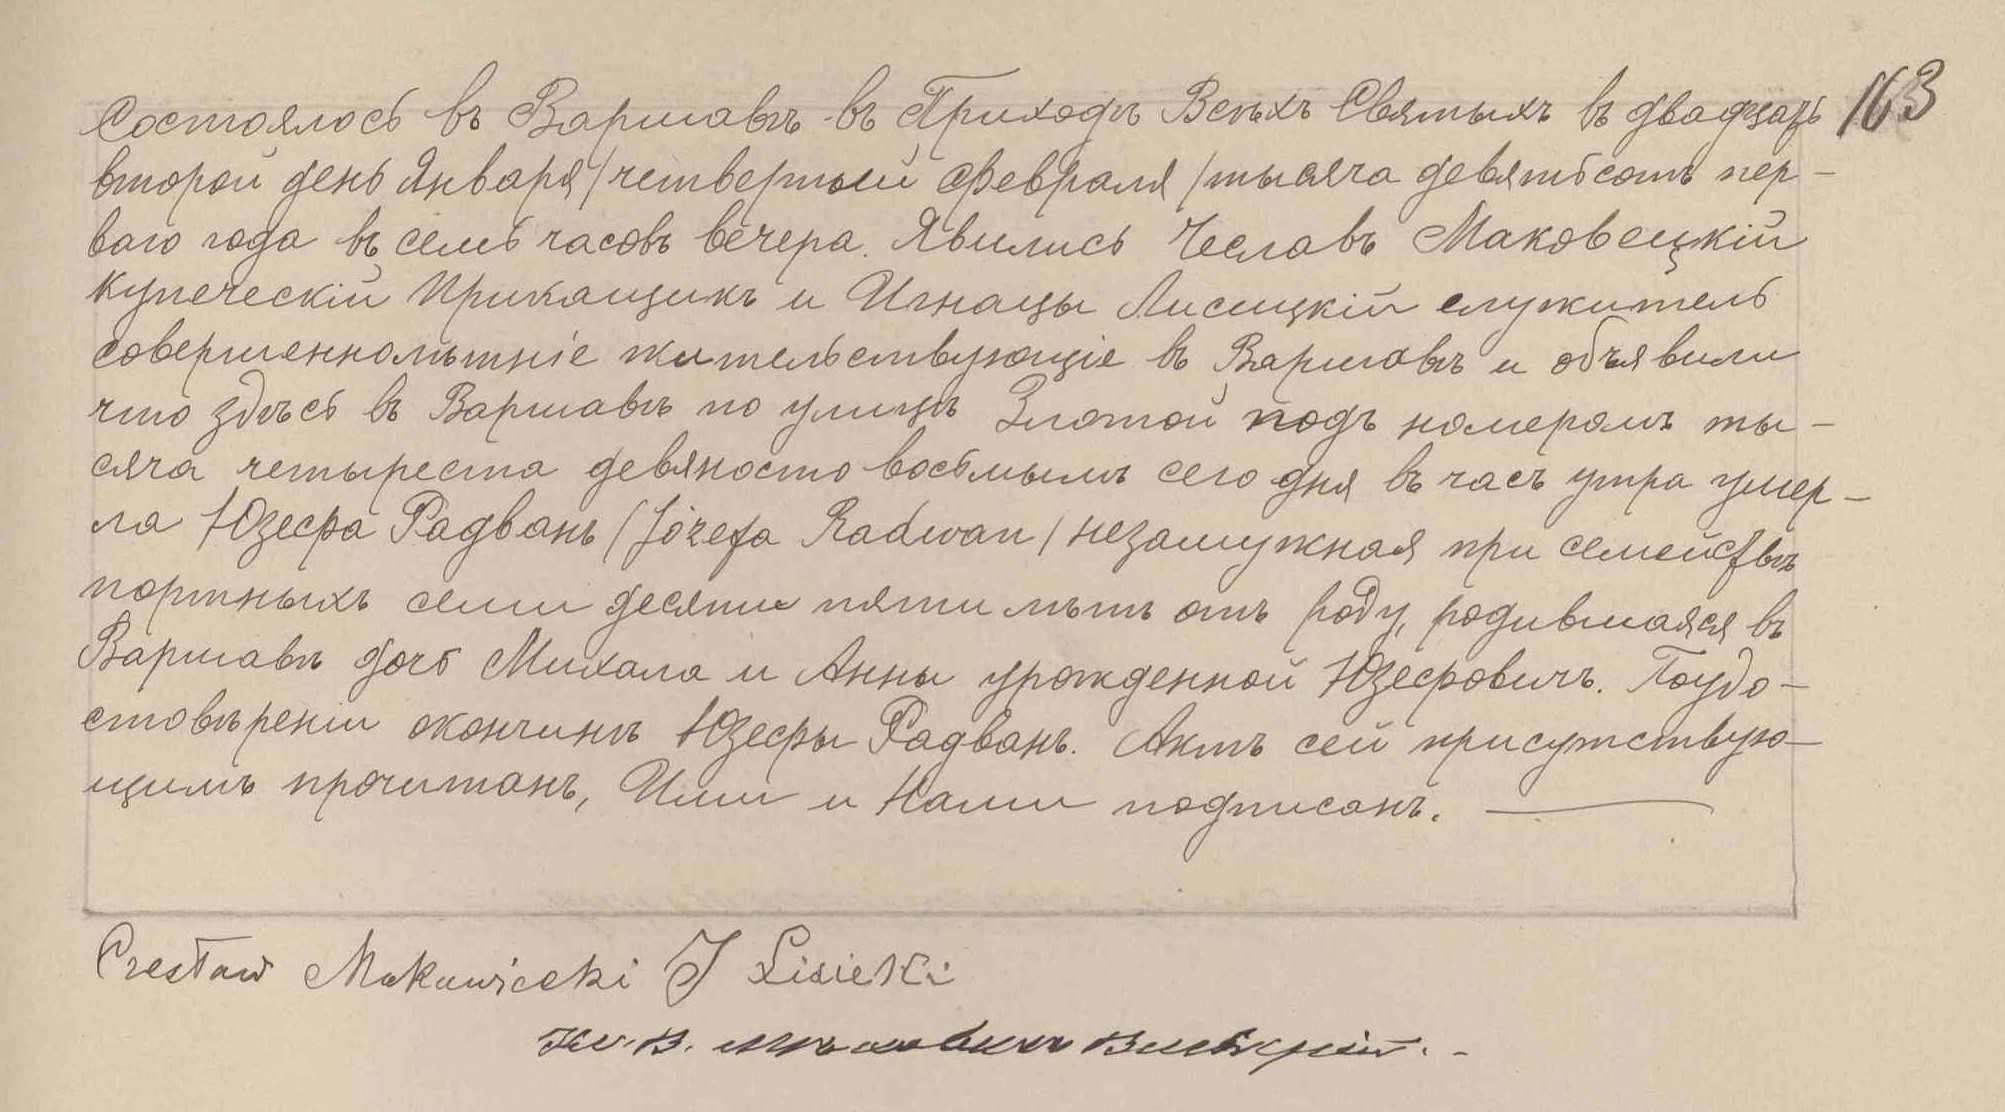 Состоялось въ Варшавѣ въ Приходѣ Всѣхъ Святыхъ въ двадцать 163
второй день Января /четвертый февраля/ тысяча девятьсотъ пер-
ваго года въ семь часовъ вечера. Явились Чеславъ Маковецкій
купеческій Прикащикъ и Игнацы Лисицкій служитель
совершеннолѣтніе жительствующіе въ Варшавѣ и объявили
что здѣсь въ Варшавѣ по улицѣ Злотой подъ номеромъ ты-
сяча четыреста девяносто восьмымъ сего дня въ часъ утра умер-
ла Юзефа Радванъ /Józefa Radwan/ незамужная при семействѣ
портныхъ семи десяти пяти лѣтъ отъ роду, родившаяся въ
Варшавѣ дочь Михала и Анны урожденной Юзефовичъ. По удо-
стовѣреніи окончинѣ Юзефы Радванъ. Актъ сей присутствую-
щимъ прочитанъ, Ими и Нами подписанъ.
Czesław Makowiecki J Lisicki
Кс. В.